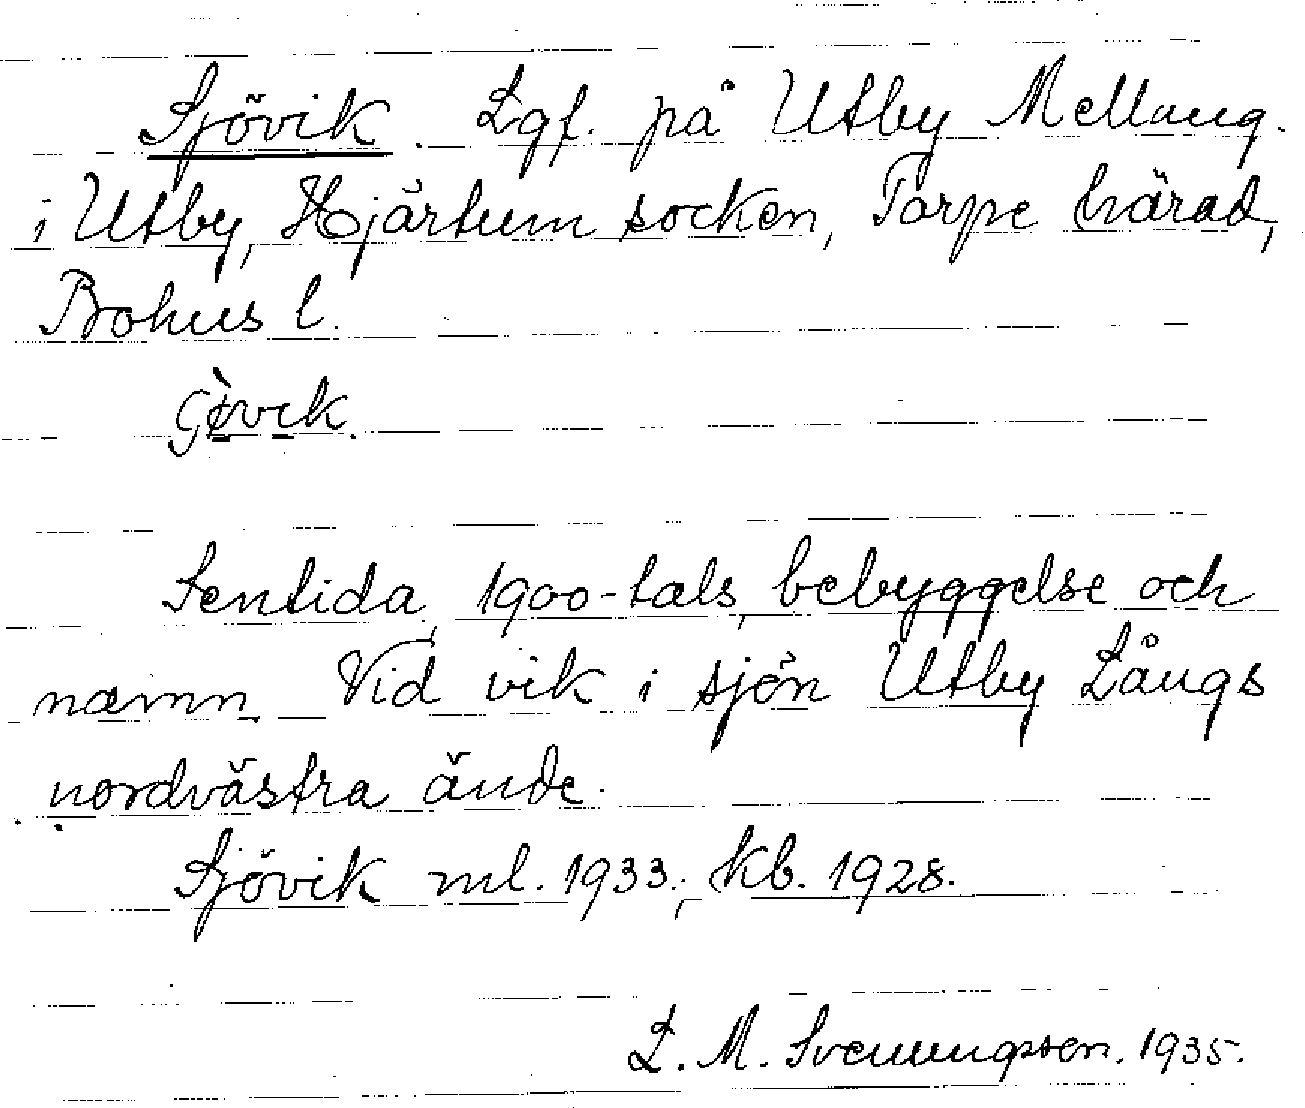 Sjövik. Lgf. på Utby Mellang.
i Utby, Hjärtum socken, Torpe härad,
Bohus l.
Sentida, 1900-tals, bebyggelse och
namn. Vid vik i sjön Utby Långs
nordvästra ände.
Sjövik ml. 1933; kb. 1928.
L. M. Svenungsson. 1935.